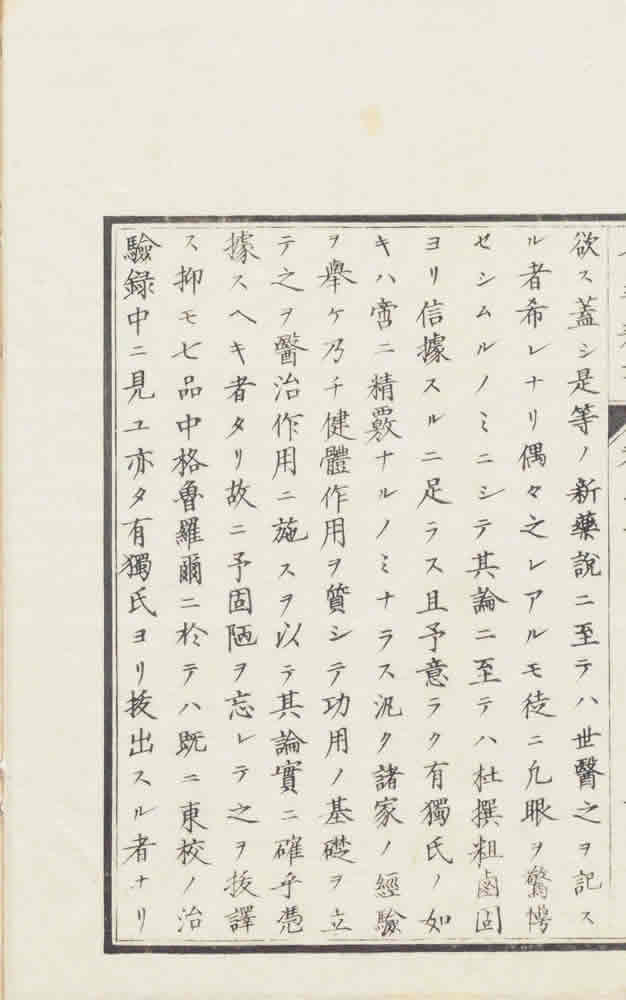 欲ス蓋シ是等ノ新藥說ニ至テハ世醫之ヲ記ス
ル者希レナリ偶々之レアルモ徒ニ凢眼ヲ驚愕
セシムルノミニシテ其論ニ至テハ杜撰粗鹵固
ヨリ信據スルニ足ラス且予意ラク有獨氏ノ如
キハ啻ニ精覈ナルノミナラス汎ク諸家ノ經驗
ヲ擧ケ乃チ健體作用ヲ質シテ功用ノ基礎ヲ立
テ之ヲ醫治作用ニ施スヲ以テ其論實ニ確乎憑
據スヘキ者タリ故ニ予固陋ヲ忘レテ之ヲ抜譯
ス抑モ七品中格魯羅爾ニ於テハ既ニ東校ノ治
驗録中ニ見ユ亦タ有獨氏ヨリ抜出スル者ナリ